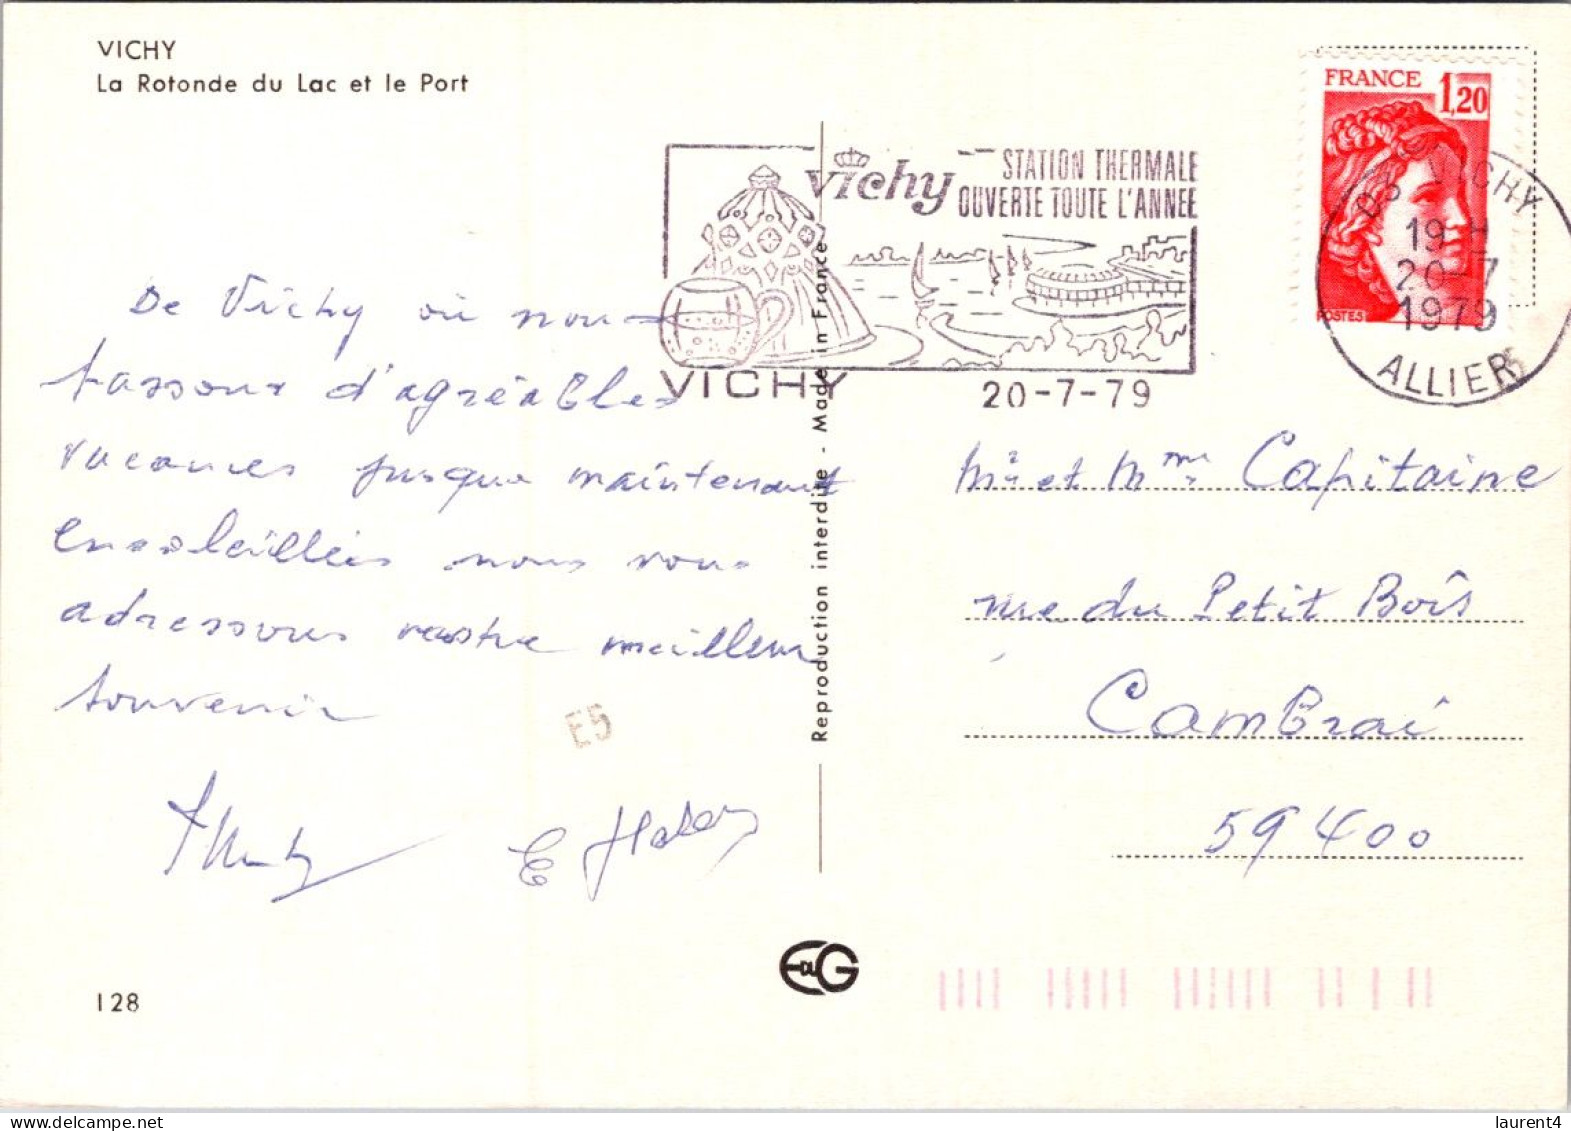 VICHY
La Rotonde du Lac et le Port
FRANCE 1,20
POSTES
Vichy
STATION THERMALE
OUVERTE TOUTE L'ANNEE
VICHY
20-7-79
03 VICHY
19 H
20-7
1979
ALLIER
De Vichy où nous
passons d'agréables
vacances jusque maintenant
ensoleillées nous vous
adressons notre meilleur
souvenir
E5
Reproduction interdite - Made in France
Mr et Mme Capitaine
rue du Petit Bois
Cambrai
59400
EG
128
delcampe.net
laurent4